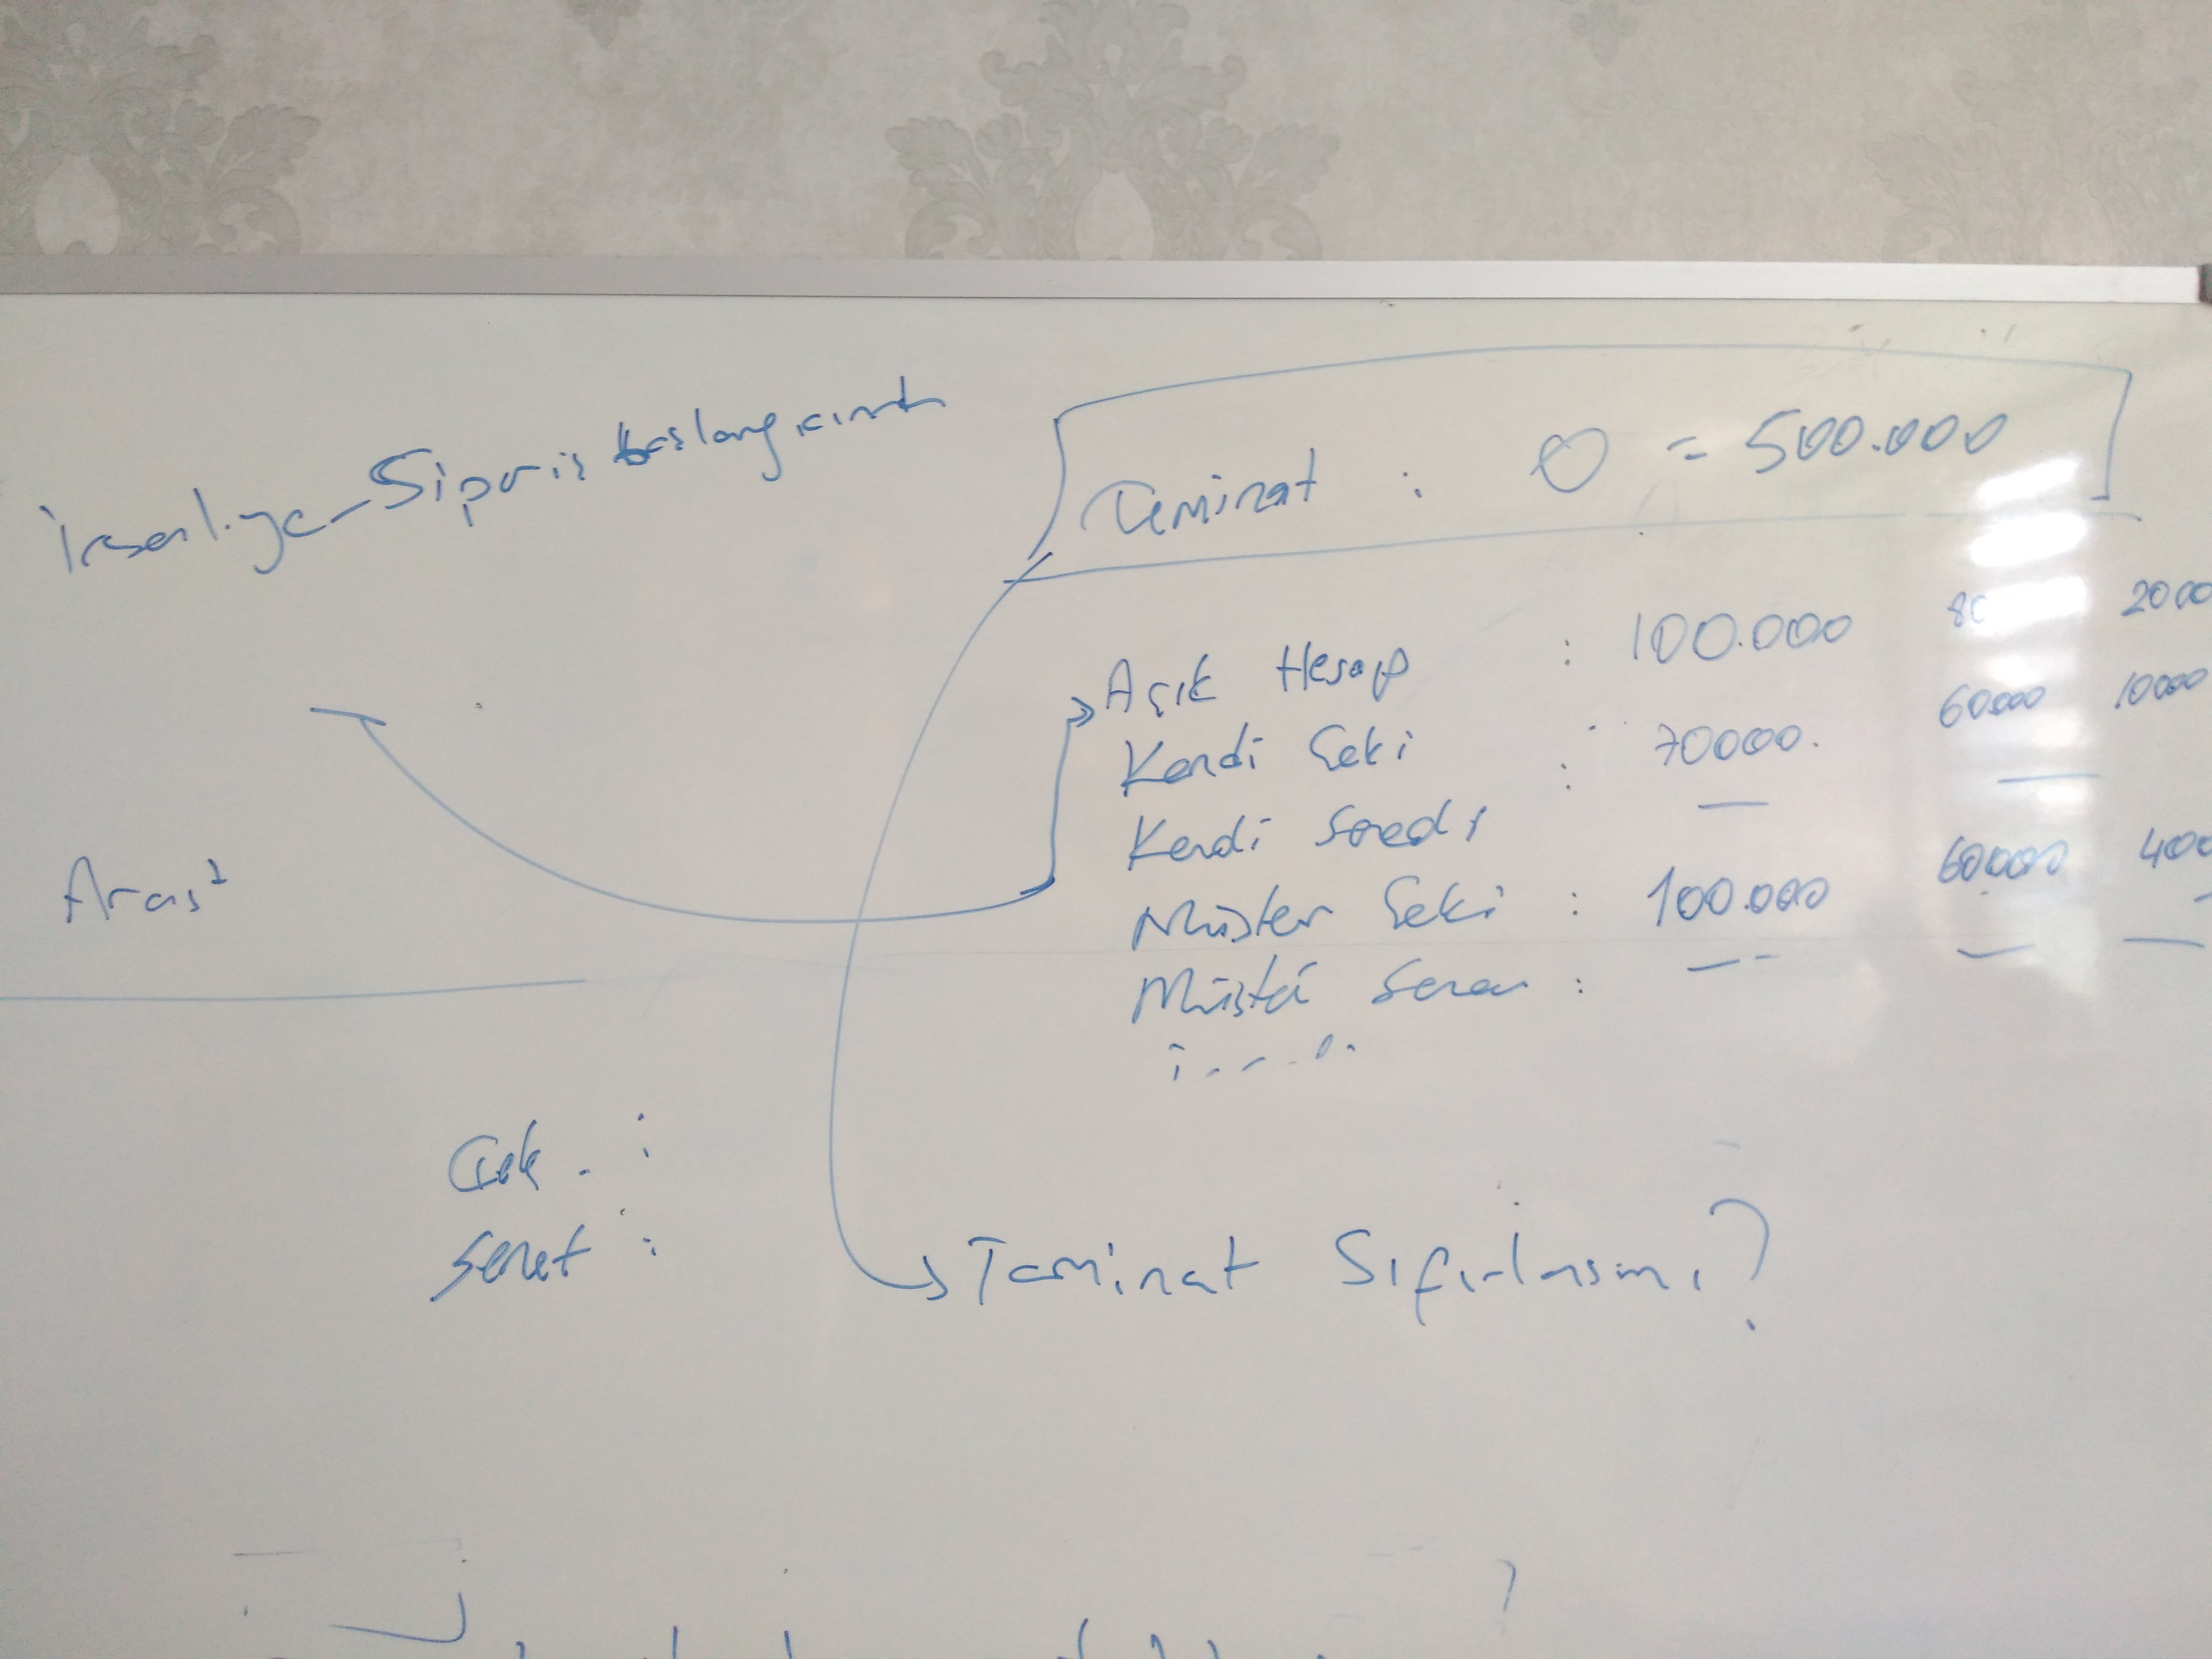 İrsaliye - Sipariş başlangıcında
Teminat : 0 = 500.000
Açık Hesap : 100.000 2000
Kendi Çeki : 70000. 60000 10000
Kendi Senedi : —
Müşter Çeki : 100.000 60.000 400
Müşteri Sened :
Arası
Çek :
Senet :
Teminat Sıfırlasmı?